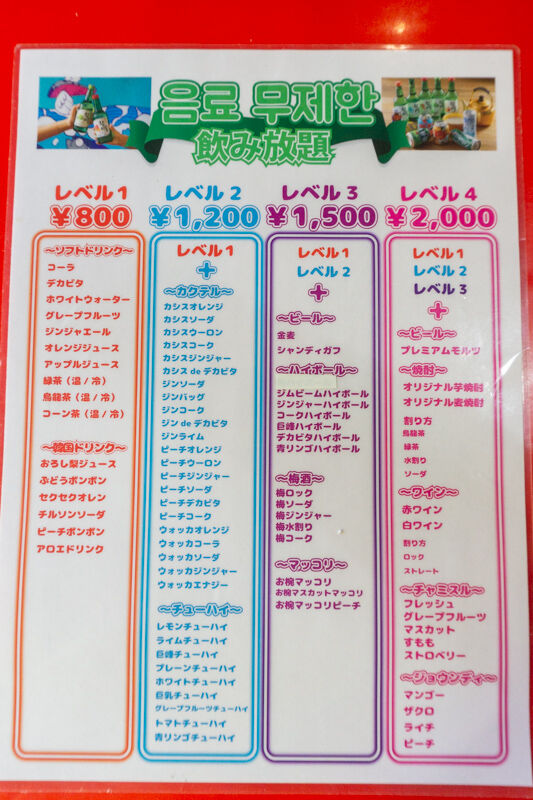 음료 무제한
飲み放題
レベル 1
￥800
～ソフトドリンク～
コーラ
デカビタ
ホワイトウォーター
グレープフルーツ
ジンジャエール
オレンジジュース
アップルジュース
緑茶（温 / 冷）
烏龍茶（温 / 冷）
コーン茶（温 / 冷）
～韓国ドリンク～
おろし梨ジュース
ぶどうポンポン
セクセクオレン
チルソンソーダ
ピーチポンポン
アロエドリンク
レベル 2
￥1,200
レベル 1
+
～カクテル～
カシスオレンジ
カシスソーダ
カシスウーロン
カシスコーク
カシスジンジャー
カシス de デカビタ
ジンソーダ
ジンバッグ
ジンコーク
ジン de デカビタ
ジンライム
ピーチオレンジ
ピーチウーロン
ピーチジンジャー
ピーチソーダ
ピーチデカビタ
ピーチコーク
ウォッカオレンジ
ウォッカコーラ
ウォッカソーダ
ウォッカジンジャー
ウォッカエナジー
～チューハイ～
レモンチューハイ
ライムチューハイ
巨峰チューハイ
プレーンチューハイ
ホワイトチューハイ
巨乳チューハイ
グレープフルーツチューハイ
トマトチューハイ
青リンゴチューハイ
レベル 3
￥1,500
レベル 1
レベル 2
+
～ビール～
金麦
シャンディガフ
～ハイボール～
ジムビームハイボール
ジンジャーハイボール
コークハイボール
巨峰ハイボール
デカビタハイボール
青リンゴハイボール
～梅酒～
梅ロック
梅ソーダ
梅ジンジャー
梅水割り
梅コーク
～マッコリ～
お椀マッコリ
お椀マスカットマッコリ
お椀マッコリピーチ
レベル 4
￥2,000
レベル 1
レベル 2
レベル 3
+
～ビール～
プレミアムモルツ
～焼酎～
オリジナル芋焼酎
オリジナル麦焼酎
割り方
烏龍茶
緑茶
水割り
ソーダ
～ワイン～
赤ワイン
白ワイン
割り方
ロック
ストレート
～チャミスル～
フレッシュ
グレープフルーツ
マスカット
すもも
ストロベリー
～ジョウンディ～
マンゴー
ザクロ
ライチ
ピーチ